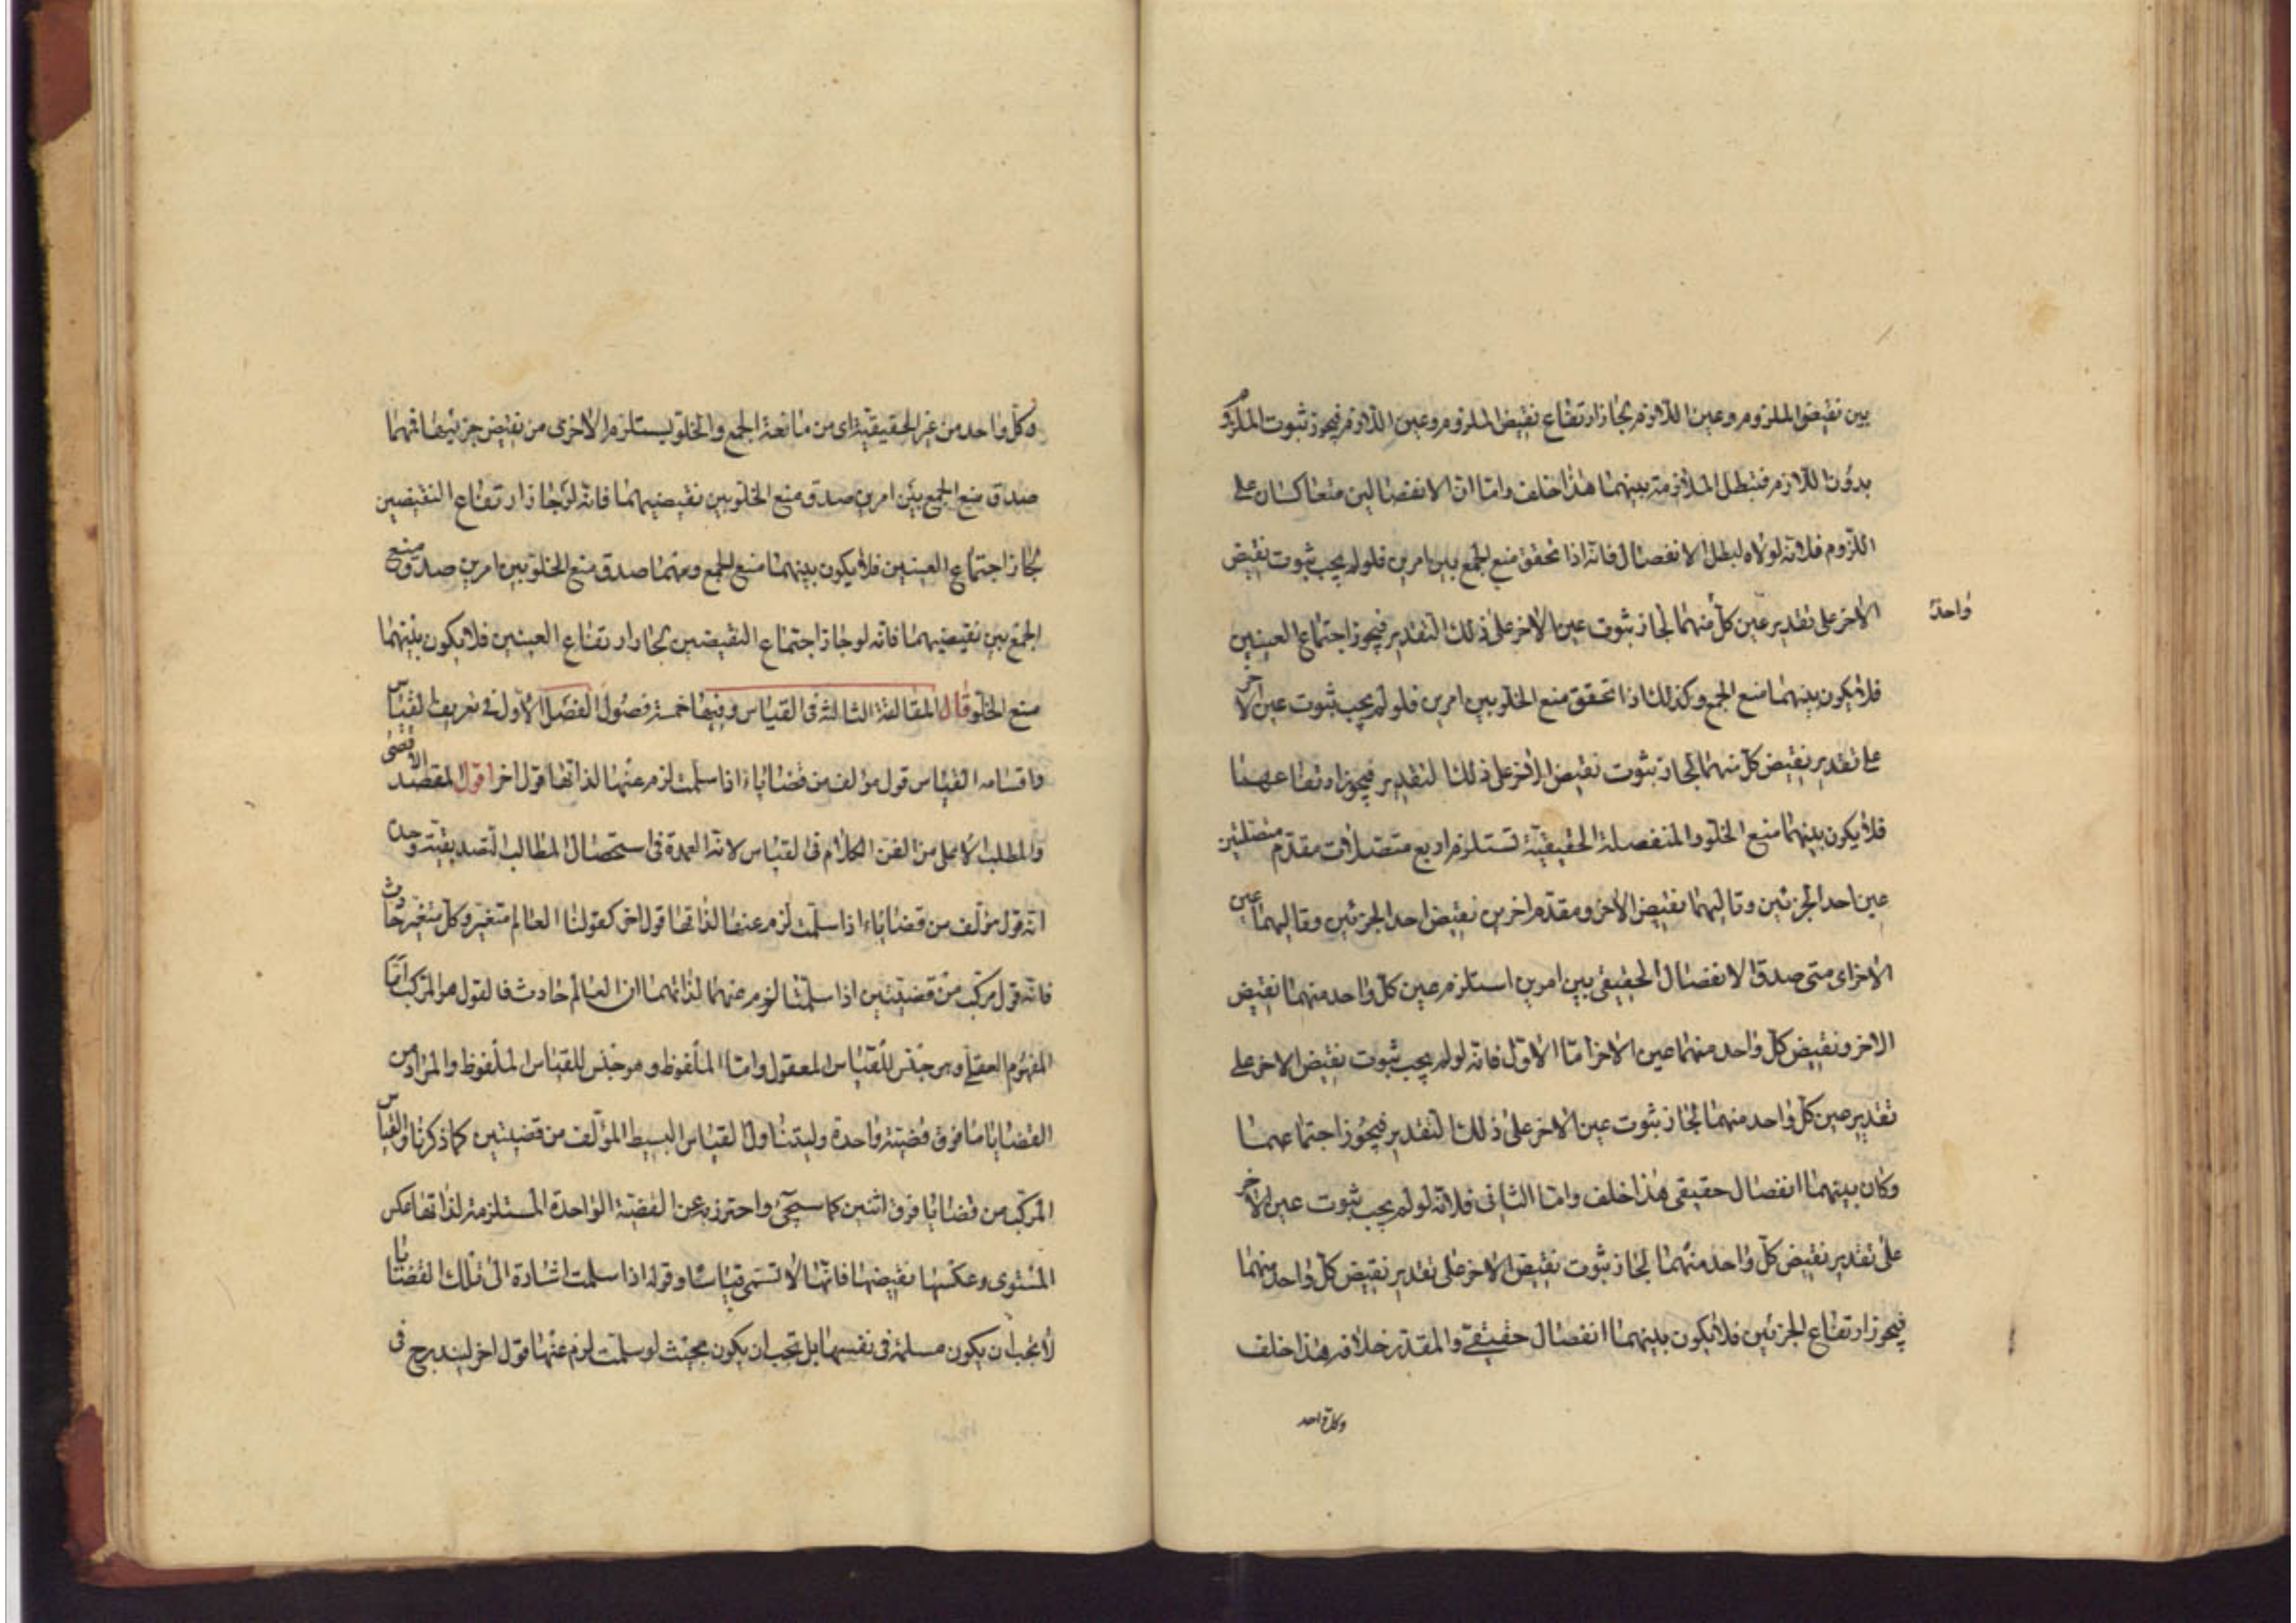 بين نقيض الملزوم وعين اللازم لجاز ارتفاع نقيض الملزوم وعين اللازم فيجوز ثبوت الملزوم
بدون اللازم فتبطل الملازمة بينهما هذا خلف واما ان الانفصالين متعاكسان على
اللزوم فلانه لولاه لبطل الانفصال فانه اذا تحقق منع الجمع بين امرين فلو لم يجب ثبوت نقيض
الاخر على تقدير عين كل منهما لجاز ثبوت عين الاخر على ذلك التقدير فيجوز اجتماع العينين
واحد
فلا يكون بينهما منع الجمع وكذلك اذا تحقق منع الخلو بين امرين فلو لم يجب ثبوت عين الآخر
على تقدير نقيض كل منهما لجاز ثبوت نقيض الاخر على ذلك التقدير فيجوز ارتفاعهما
فلا يكون بينهما منع الخلو والمنفصلة الحقيقيّة تستلزم اربع متصلات مقدّم متصلتين
عين احد الجزئين وتاليهما نقيض الآخر ومقدم اخرين نقيض احد الجزئين وتاليهما عين
الاخر اى متى صدق الانفصال الحقيقى بين امرين استلزم عين كلّ واحد منهما نقيض
الاخر ونقيض كلّ واحد منهما عين الآخر امّا الاوّل فانه لو لم يجب ثبوت نقيض الاخر على
تقدير عين كلّ واحد منهما لجاز ثبوت عين الاخر على ذلك التقدير فيجوز اجتماعهما
وكان بينهما انفصال حقيقى هذا خلف وامّا الثانى فلانّه لو لم يجب ثبوت عين الآخر
على تقدير نقيض كلّ واحد منهما لجاز ثبوت نقيض الآخر على تقدير نقيض كلّ واحد منهما
فيجوز ارتفاع الجزئين فلا يكون بينهما انفصال حقيقىّ والمقدّر خلافه هذا خلف
وكل واحد
وكلّ واحد من غير الحقيقيّة اى من مانعة الجمع والخلوّ يستلزم الاخرى من نقيض جزئيها فمهما
صدق منع الجمع بين امرين صدق منع الخلو بين نقيضيهما فانّه لو جاز ارتفاع النقيضين
لجاز اجتماع العينين فلا يكون بينهما منع الجمع ومهما صدق منع الخلوّ بين امرين صدق منع
الجمع بين نقيضيهما فانّه لو جاز اجتماع النقيضين لجاز ارتفاع العينين فلا يكون بينهما
منع الخلوّ قال المقالة الثالثة فى القياس وفيها خمسة فصول الفصل الاول فى تعريف القياس
واقسامه القياس قول مؤلف من قضايا اذا سلمت لزم عنها لذاتها قول اخر اقول المقصد الاقصى
والمطلب الاعلى من الفن الكلام فى القياس لانه العمدة فى استحصال المطالب التصديقيّة وحدّه
انّه قول مؤلف من قضايا اذا سلّمت لزم عنها لذاتها قول اخر كقولنا العالم متغيّر وكلّ متغيّر حادث
فانّه قول مركّب من قضيّتين اذا سلّمتا لزم عنهما لذاتهما ان العالم حادث فالقول هو المركّب امّا
المفهوم العقلى وهو جنس للقياس المعقول وامّا الملفوظ وهو جنس للقياس الملفوظ والمراد من
القضايا ما فوق قضيّة واحدة وليتناول القياس البسيط المؤلّف من قضيتين كما ذكرنا والقياس
المركّب من قضايا فوق اثنين كما سيجئ واحترز به عن القضيّة الواحدة المستلزمة لذاتها عكس
المستوى وعكس نقيضها فانّها لا تسمى قياسا وقوله اذا سلمت اشارة الى ان تلك القضايا
لا يجب ان يكون مسلمة فى نفسها بل يجب ان يكون بحيث لو سلمت لزم عنها قول اخر ليندرج فى